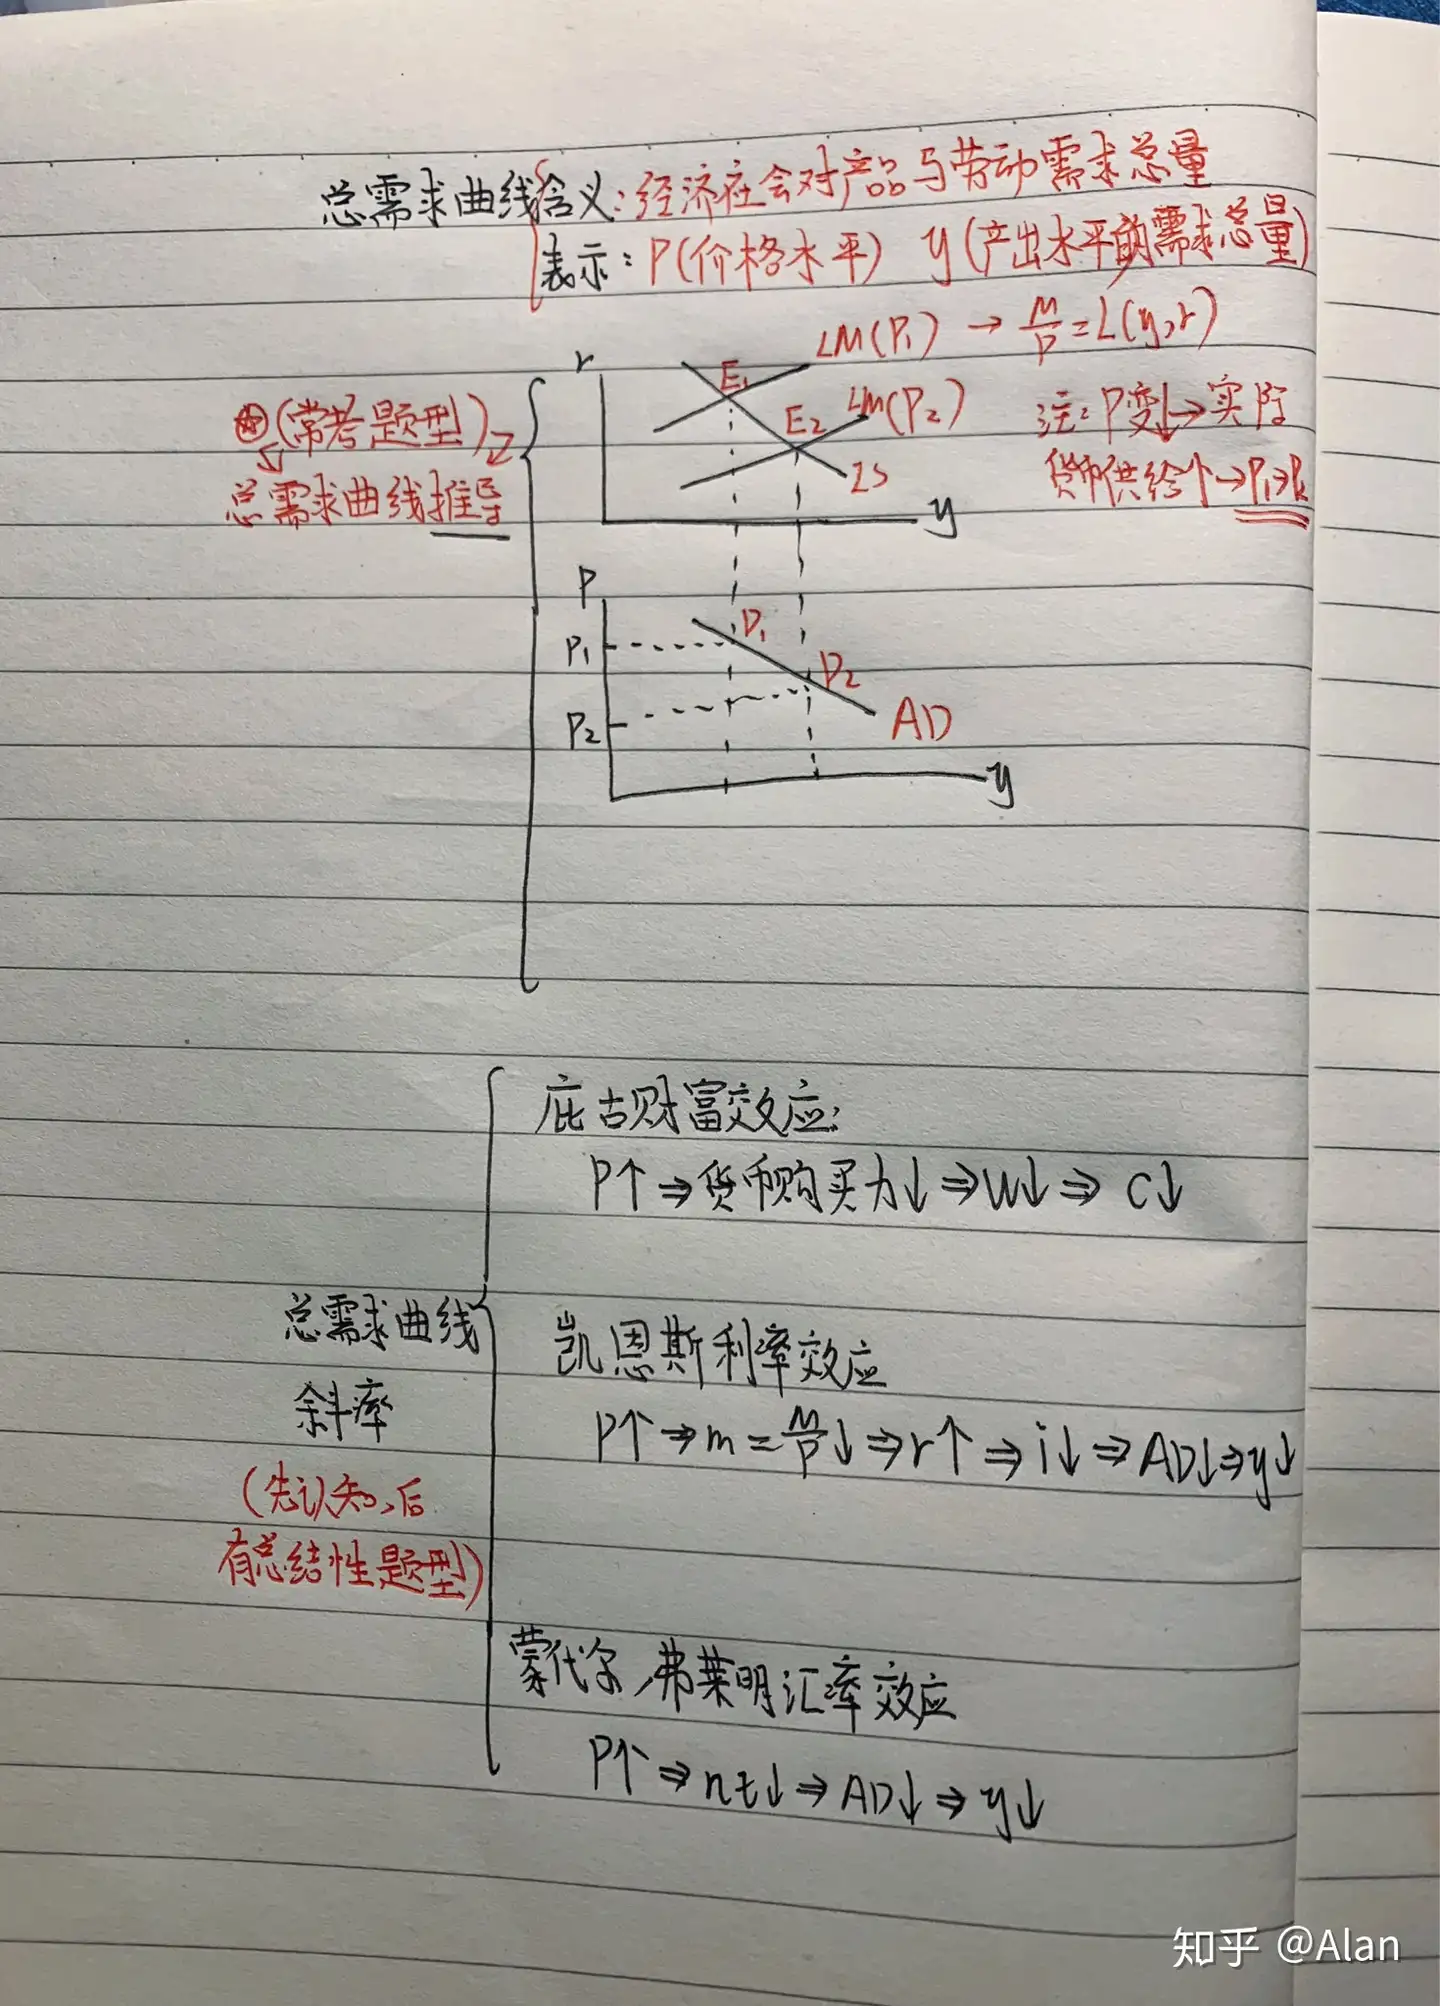 总需求曲线含义：经济社会对产品与劳动需求总量
表示：P(价格水平) y(产出水平的需求总量)
LM(P₁) → M/P=L(y,r)
r
E₁
(常考题型)
E₂
LM(P₂)
注：P变↓→实际
总需求曲线推导
IS
货币供给个→P₁>P₂
y
P
P₁
D₁
D₂
P₂
AD
y
庇古财富效应：
P↑⇒货币购买力↓⇒W↓⇒C↓
总需求曲线
斜率
凯恩斯利率效应
P↑⇒m=M/P↓⇒r↑⇒i↓⇒AD↓⇒y↓
(先认知,后
有总结性题型)
蒙代尔,弗莱明汇率效应
P↑⇒nt↓⇒AD↓⇒y↓
知乎 @Alan